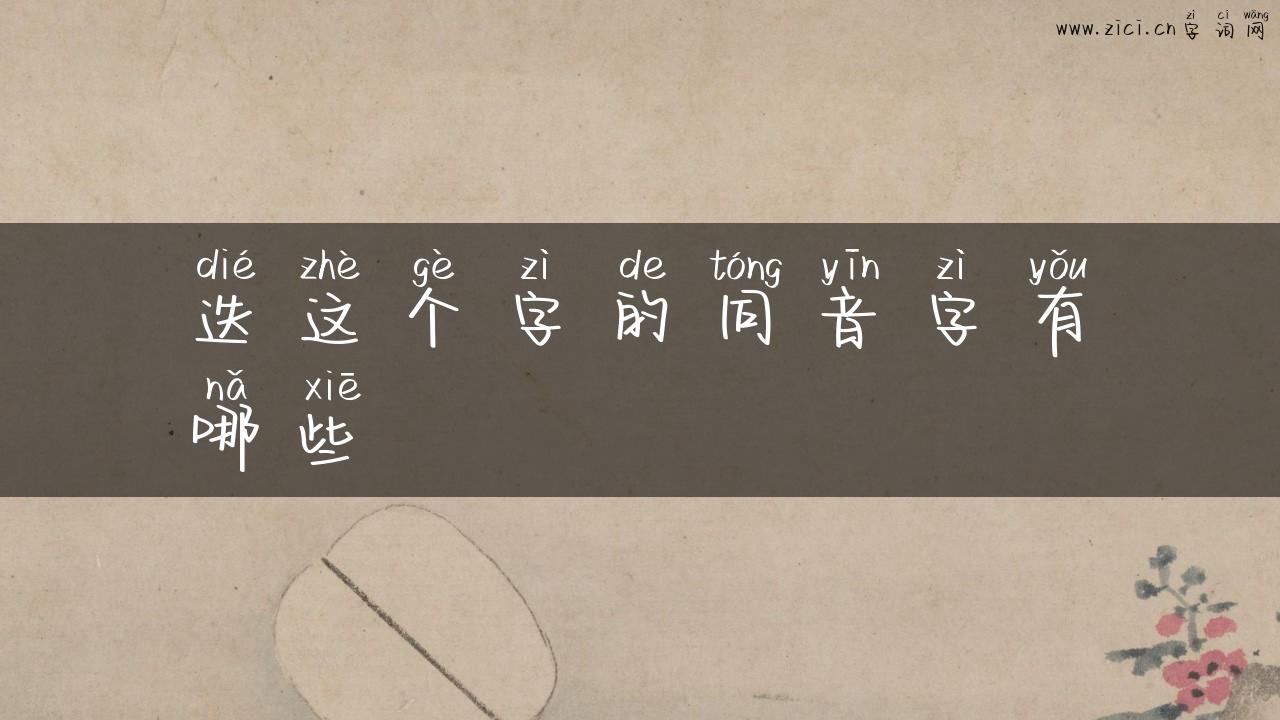 zì cí wǎng
www.zici.cn字词网
dié zhè gè zì de tóng yīn zì yǒu
迭这个字的同音字有
nǎ xiē
哪些